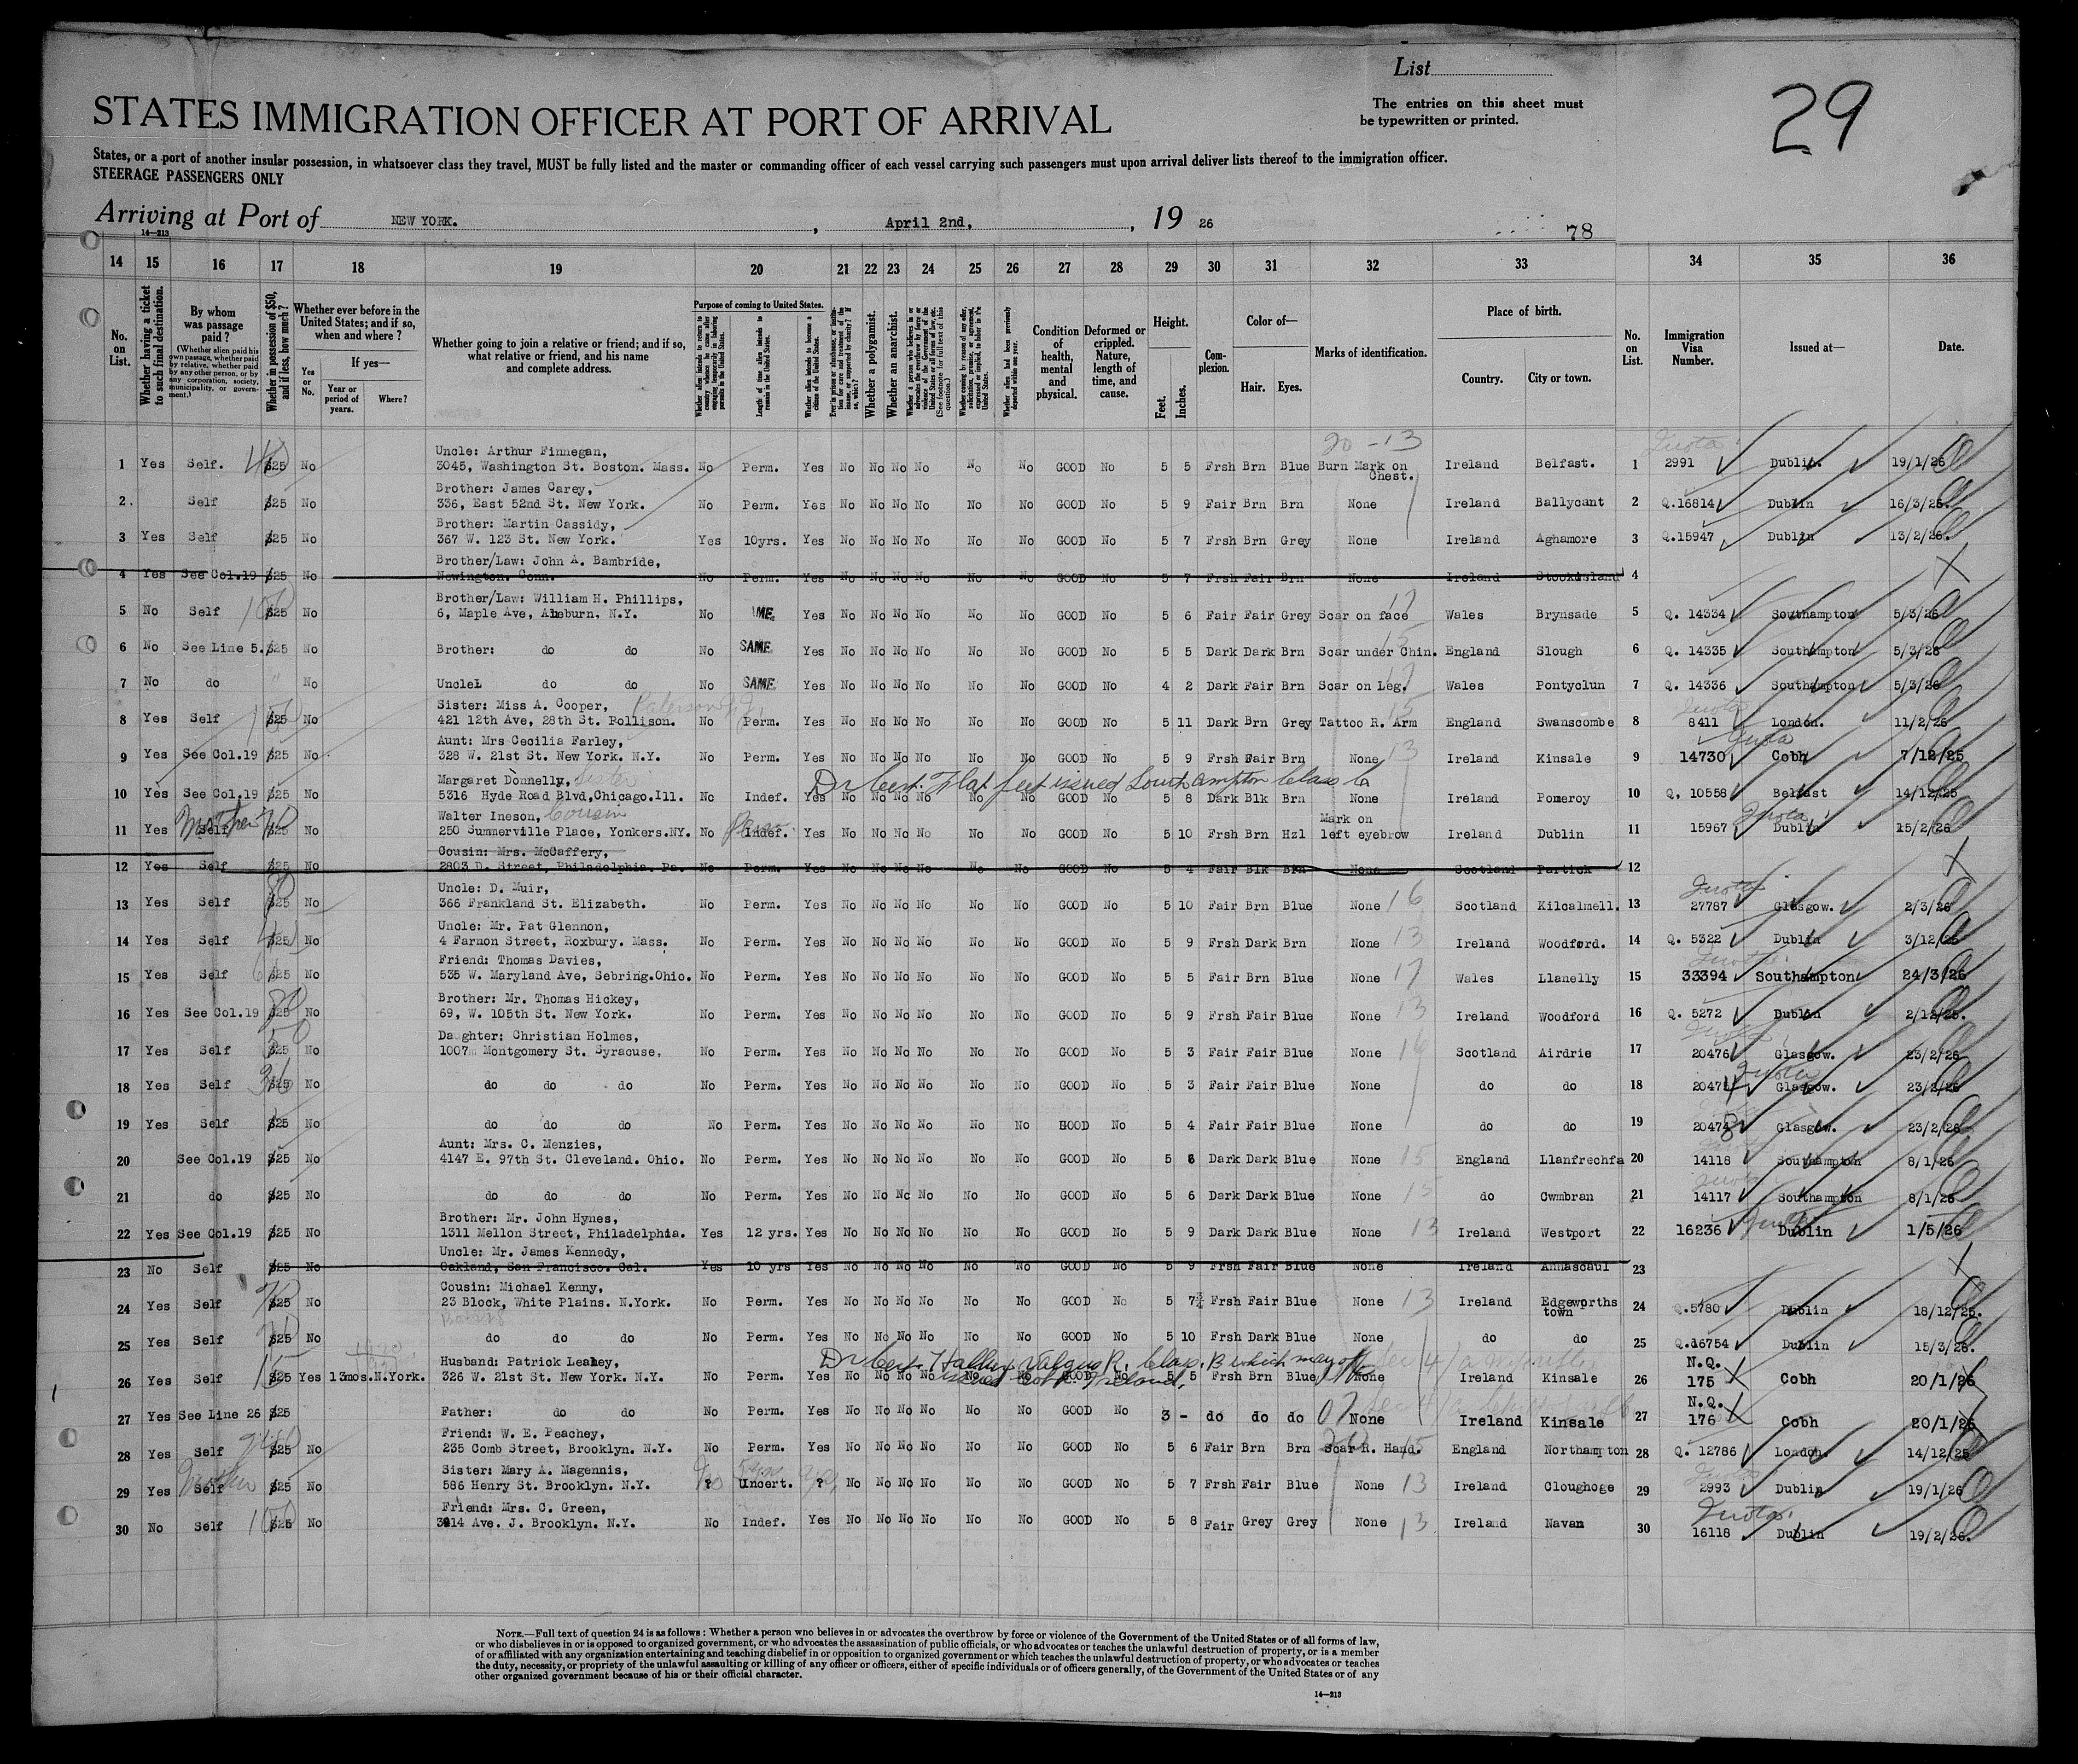 List
29
STATES IMMIGRATION OFFICER AT PORT OF ARRIVAL
The entries on this sheet must
be typewritten or printed.
States, or a port of another insular possession, in whatsoever class they travel, MUST be fully listed and the master or commanding officer of each vessel carrying such passengers must upon arrival deliver lists thereof to the immigration officer.
STEERAGE PASSENGERS ONLY
Arriving at Port of NEW YORK. , April 2nd, , 19 26
14—213
78
14 15 16 17 18 19 20 21 22 23 24 25 26 27 28 29 30 31 32 33 34 35 36
No. on List.
Whether having a ticket to such final destination.
By whom was passage paid?
(Whether alien paid his own passage, whether paid by relative, whether paid by any other person, or by any corporation, society, municipality, or government.)
Whether in possession of $50, and if less, how much?
Whether ever before in the United States; and if so, when and where?
Yes or No.
If yes—
Year or period of years.
Where?
Whether going to join a relative or friend; and if so, what relative or friend, and his name and complete address.
Purpose of coming to United States.
Length of time alien intends to remain in the United States.
Whether alien intends to become a citizen of the United States.
Whether a polygamist.
Whether an anarchist.
Condition of health, mental and physical.
Deformed or crippled. Nature, length of time, and cause.
Height.
Feet. Inches.
Complexion.
Color of—
Hair. Eyes.
Marks of identification.
Place of birth.
Country. City or town.
No. on List.
Immigration Visa Number.
Issued at—
Date.
20 -13 Quota
Uncle: Arthur Finnegan,
1 Yes Self. $25 No 3045, Washington St. Boston. Mass. No Perm. Yes No No No No No No GOOD No 5 5 Frsh Brn Blue Burn Mark on Chest. Ireland Belfast. 1 2991 Dublin. 19/1/26
Brother: James Carey,
2. Self $25 No 336, East 52nd St. New York. No Perm. Yes No No No No No No GOOD No 5 9 Fair Brn Brn None Ireland Ballycant 2 Q.16814 Dublin 16/3/26.
Brother: Martin Cassidy,
3 Yes Self $25 No 367 W. 123 St. New York. Yes 10yrs. Yes No No No No No No GOOD No 5 7 Frsh Brn Grey None Ireland Aghamore 3 Q.15947 Dublin 13/2/26.
Brother/Law: John A. Bambride,
4 Yes See Col.19 $25 No Newington. Conn. No Perm. Yes No No No No No No GOOD No 5 7 Frsh Fair Brn None Ireland Stookisland 4
Brother/Law: William H. Phillips,
5 No Self $25 No 6, Maple Ave, Auburn. N.Y. No Yes No No No No No No GOOD No 5 6 Fair Fair Grey Scar on face 17 Wales Brynsade 5 Q. 14334 Southampton 5/3/26
6 No See Line 5. $25 No Brother: do do No SAME Yes No No No No No No GOOD No 5 5 Dark Dark Brn Scar under Chin. 15 England Slough 6 Q. 14335 Southampton 5/3/26
7 No do " No Uncle: do do No SAME Yes No No No No No No GOOD No 4 2 Dark Fair Brn Scar on Leg. 17 Wales Pontyclun 7 Q. 14336 Southampton 5/3/26
Sister: Miss A. Cooper, Paterson N.J. 15 Quota
8 Yes Self $25 No 421 12th Ave, 28th St. Pollison. No Perm. Yes No No No No No No GOOD No 5 11 Dark Brn Grey Tattoo R. Arm England Swanscombe 8 8411 London. 11/2/26
Aunt: Mrs Cecilia Farley, Quota
9 Yes See Col.19 $25 No 328 W. 21st St. New York. N.Y. No Perm. Yes No No No No No No GOOD No 5 9 Frsh Fair Brn None 13 Ireland Kinsale 9 14730 Cobh 7/12/25
Margaret Donnelly, Sister Dr Cert. Flat feet issued Southampton Class B
10 Yes See Col.19 $25 No 5316 Hyde Road Blvd,Chicago.Ill. No Indef. Yes No No No No No No GOOD No 5 8 Dark Blk Brn None Ireland Pomeroy 10 Q. 10558 Belfast 14/12/25
Walter Ineson, Cousin Quota
11 Yes Self Mother $25 No 250 Summerville Place, Yonkers.NY. No Indef. Perm. Yes No No No No No No GOOD No 5 10 Frsh Brn Hzl Mark on left eyebrow Ireland Dublin 11 15967 Dublin 15/2/26
Cousin: Mrs. McCaffery,
12 Yes Self $25 No 2803 D. Street, Philadelphia. Pa. No Perm. Yes No No No No No No GOOD No 5 4 Fair Blk Brn None Scotland Partick 12
Uncle: D. Muir, Quota
13 Yes Self $25 No 366 Frankland St. Elizabeth. No Perm. Yes No No No No No No GOOD No 5 10 Fair Brn Blue None 16 Scotland Kilcalmell. 13 27787 Glasgow. 2/3/26
Uncle: Mr. Pat Glennon,
14 Yes Self $25 No 4 Farnon Street, Roxbury. Mass. No Perm. Yes No No No No No No GOOD No 5 9 Frsh Dark Brn None 13 Ireland Woodford. 14 Q. 5322 Dublin 3/12/25
Friend: Thomas Davies, Quota
15 Yes Self $25 No 535 W. Maryland Ave, Sebring.Ohio. No Perm. Yes No No No No No No GOOD No 5 5 Fair Brn Blue None 17 Wales Llanelly 15 33394 Southampton 24/3/26
Brother: Mr. Thomas Hickey,
16 Yes See Col.19 $25 No 69, W. 105th St. New York. No Perm. Yes No No No No No No GOOD No 5 9 Frsh Fair Blue None 13 Ireland Woodford 16 Q. 5272 Dublin 2/12/25.
Daughter: Christian Holmes, Quota
17 Yes Self $25 No 1007 Montgomery St. Syracuse, No Perm. Yes No No No No No No GOOD No 5 3 Fair Fair Blue None 16 Scotland Airdrie 17 20476 Glasgow. 23/2/26
18 Yes Self No do do do No Perm. Yes No No No No No No GOOD No 5 3 Fair Fair Blue None do do 18 20475 Quota Glasgow. 23/2/26
19 Yes Self $25 No do do do No Perm. Yes No No No No No No GOOD No 5 4 Fair Fair Blue None do do 19 20474 Glasgow. 23/2/26
Aunt: Mrs. C. Menzies,
20 See Col.19 $25 No 4147 E. 97th St. Cleveland. Ohio. No Perm. Yes No No No No No No GOOD No 5 6 Dark Dark Blue None 15 England Llanfrechfa 20 14118 Southampton 8/1/26
21 do $25 No do do do No Perm. Yes No No No No No No GOOD No 5 6 Dark Dark Blue None 15 do Cwmbran 21 14117 Southampton 8/1/26
Brother: Mr. John Hynes, Quota
22 Yes See Col.19 $25 No 1311 Mellon Street, Philadelphia. Yes 12 yrs. Yes No No No No No No GOOD No 5 9 Dark Dark Blue None 13 Ireland Westport 22 16236 Dublin 1/5/26
Uncle: Mr. James Kennedy,
23 No Self $25 No Oakland, San Francisco. Cal. Yes 10 yrs Yes No No No No No No GOOD No 5 9 Frsh Fair Blue None Ireland Annascaul 23
Cousin: Michael Kenny,
24 Yes Self $25 No 23 Block, White Plains. N.York. No Perm. Yes No No No No No No GOOD No 5 7½ Frsh Fair Blue None 13 Ireland Edgeworths town 24 Q.5780 Dublin 18/12/25.
25 Yes Self $25 No do do do No Perm. Yes No No No No No No GOOD No 5 10 Frsh Dark Blue None do do 25 Q.16754 Dublin 15/3/26.
Husband: Patrick Leahey, Dr Cert. Hallux Valgus R. Class. B which may N.Q.
26 Yes Self $25 Yes 13mos.N.York. 326 W. 21st St. New York. N.Y. No Perm. Yes No No No No No No GOOD No 5 5 Frsh Brn Blue None Ireland Kinsale 26 175 Cobh 20/1/26
issued Cobh Ireland. N.Q.
27 Yes See Line 26 $25 Father: do do No Perm. Yes No No No No No No GOOD No 3 - do do do None Ireland Kinsale 27 176 Cobh 20/1/26
Friend: W. E. Peachey,
28 Yes Self $25 No 235 Comb Street, Brooklyn. N.Y. No Perm. Yes No No No No No No GOOD No 5 6 Fair Brn Brn Scar R. Hand. 15 England Northampton 28 Q. 12786 London. 14/12/25
Sister: Mary A. Magennis, Quota
29 Yes Self Mother $25 No 586 Henry St. Brooklyn. N.Y. ? No Uncert. ? No No No No No No GOOD No 5 7 Frsh Fair Blue None 13 Ireland Cloughoge 29 2993 Dublin 19/1/26
Friend: Mrs. C. Green, Quota
30 No Self 100 $25 No 3014 Ave. J. Brooklyn. N.Y. No Indef. Yes No No No No No No GOOD No 5 8 Fair Grey Grey None 13 Ireland Navan 30 16118 Dublin 19/2/26.
NOTE.—Full text of question 24 is as follows: Whether a person who believes in or advocates the overthrow by force or violence of the Government of the United States or of all forms of law,
or who disbelieves in or is opposed to organized government, or who advocates the assassination of public officials, or who advocates or teaches the unlawful destruction of property, or is a member
of or affiliated with any organization entertaining and teaching disbelief in or opposition to organized government or which teaches the unlawful destruction of property, or who advocates or teaches
the duty, necessity, or propriety of the unlawful assaulting or killing of any officer or officers, either of specific individuals or of officers generally, of the Government of the United States or of any
other organized government because of his or their official character.
14—213